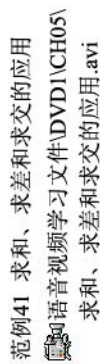 范例41 求和、求差和求交的应用
语音视频学习文件\DVD1\CH05\
求和、求差和求交的应用.avi